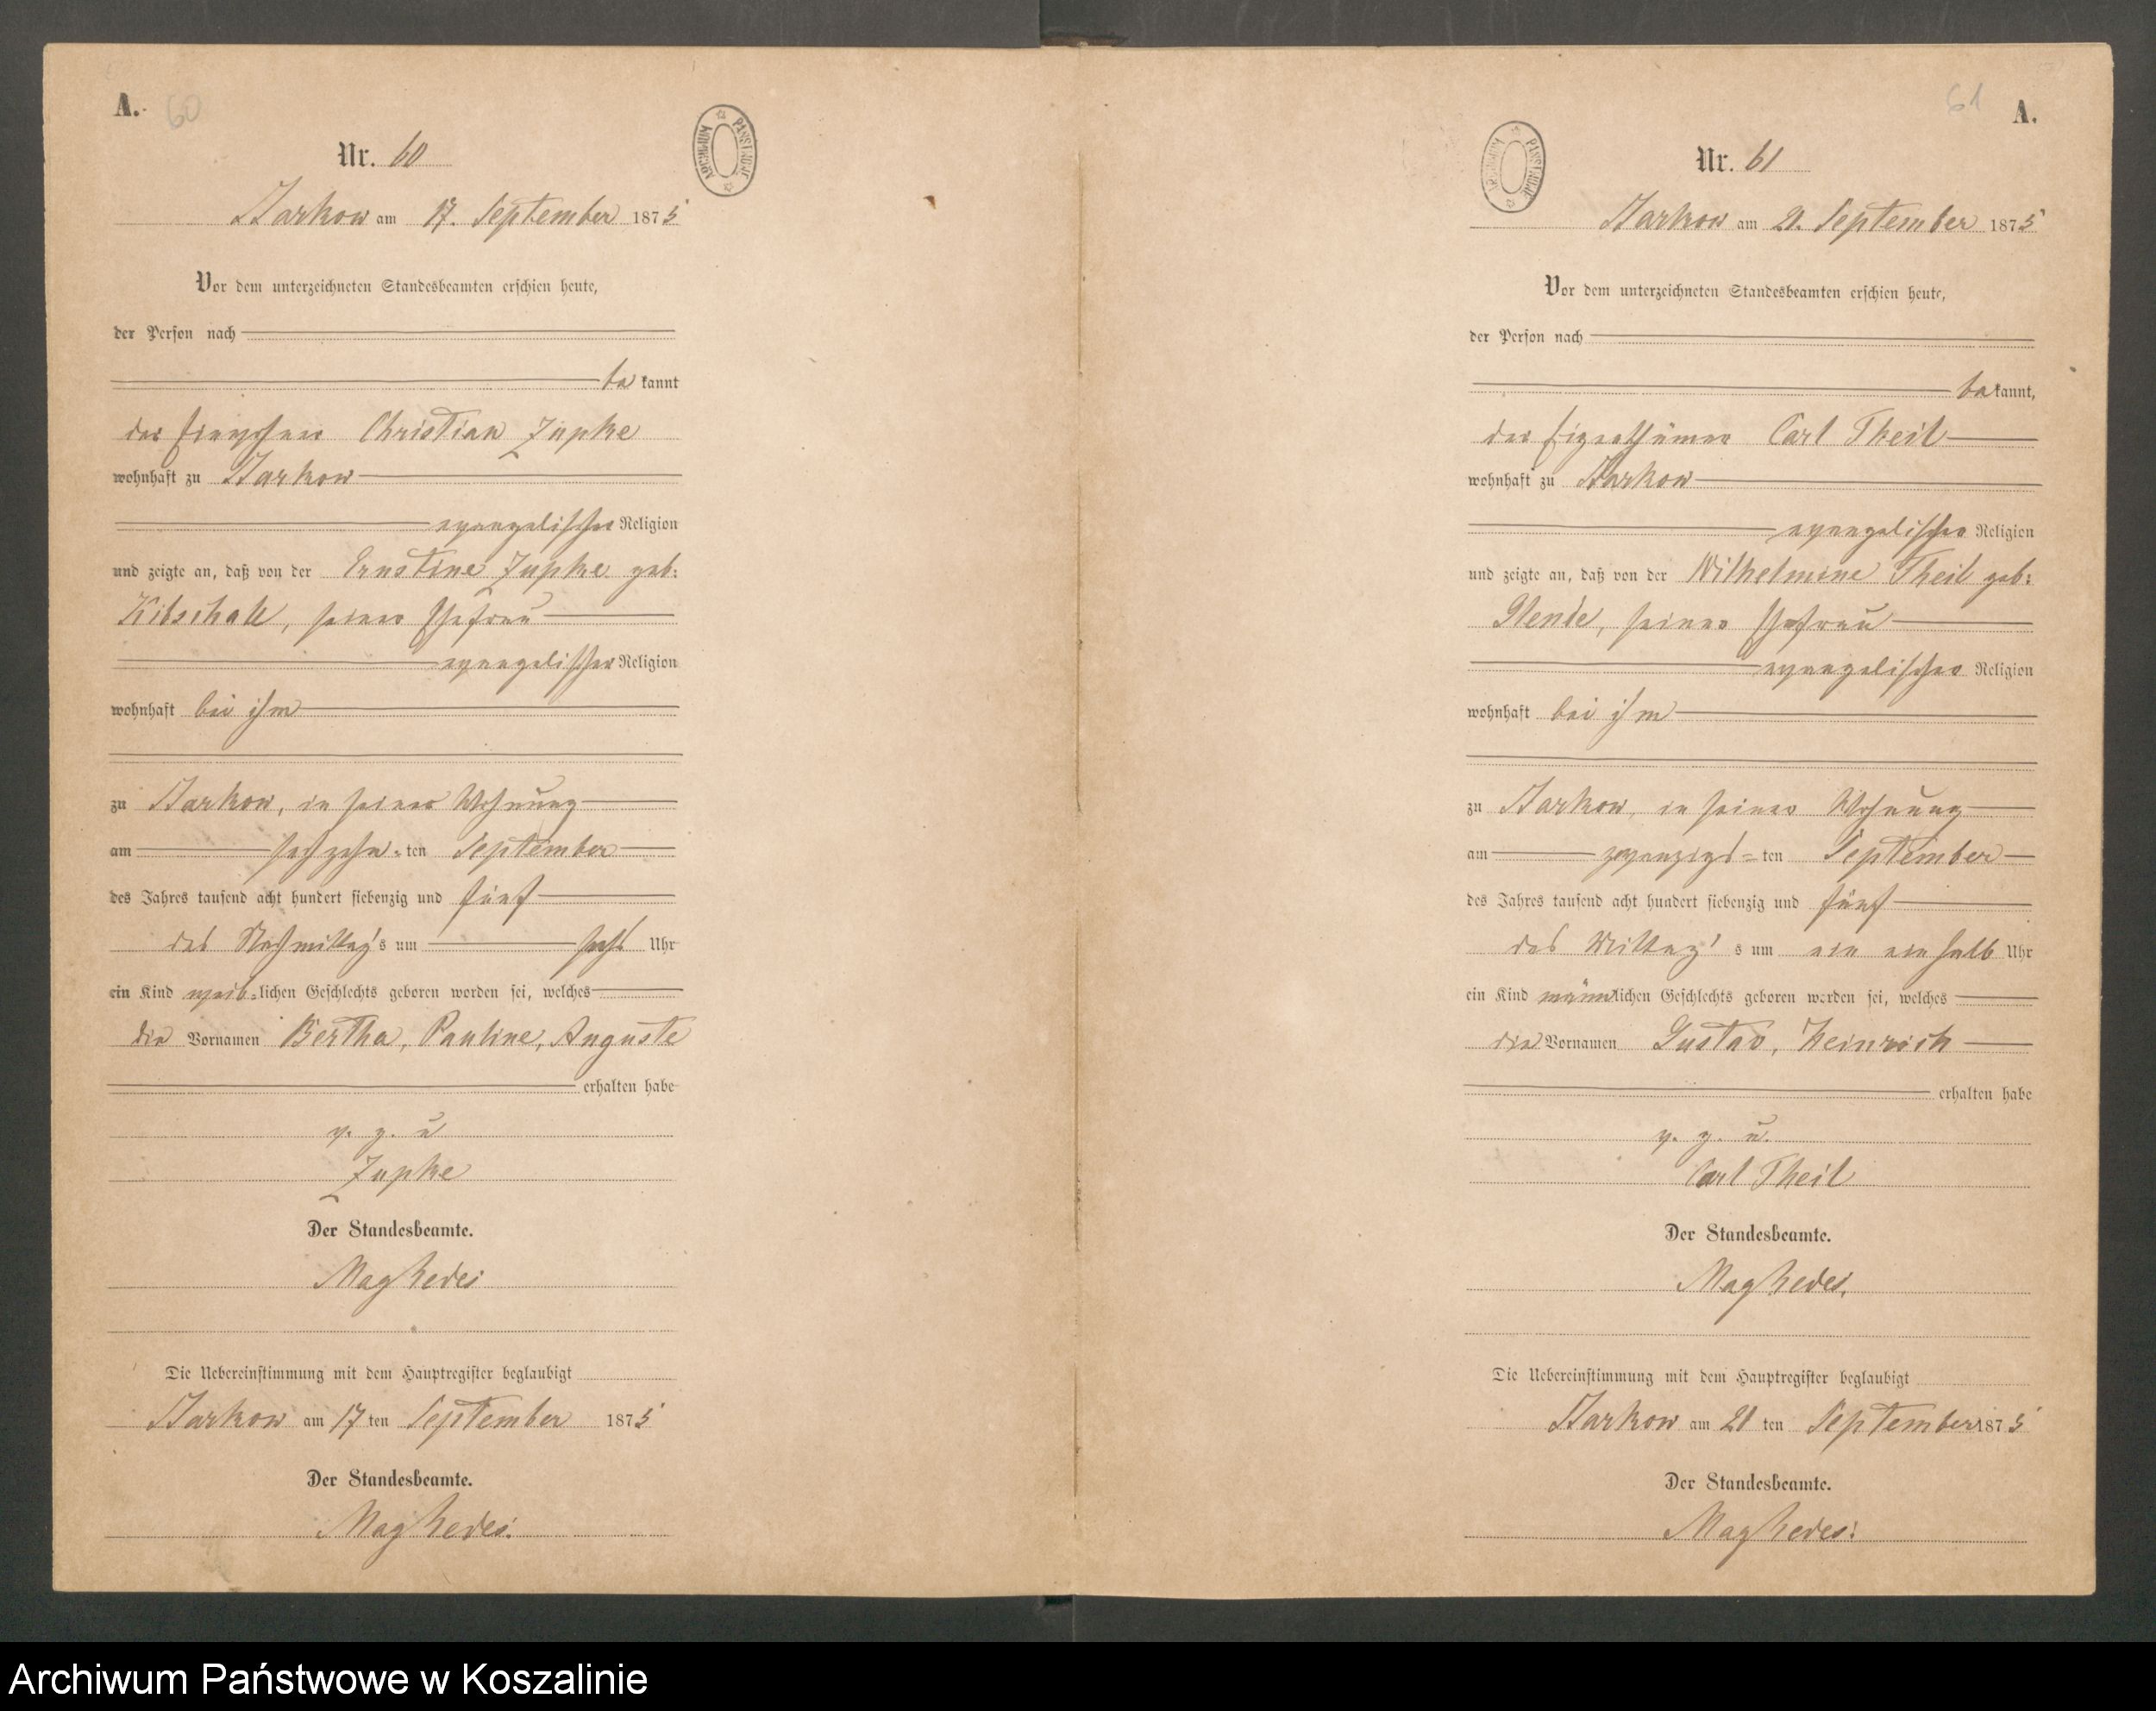 A. 60
Nr. 60
ARCHIWUM PAŃSTWOWE
Starkow am 17. September 1875
Vor dem unterzeichneten Standesbeamten erschien heute,
der Person nach
bekannt
der Einwohner Christian Zupke
wohnhaft zu Starkow
evangelischer Religion
und zeigte an, daß von der Ernstine Zupke geb:
Kibschall, seiner Ehefrau
evangelischer Religion
wohnhaft bei ihm
zu Starkow, in seiner Wohnung
am sechzehn-ten September
des Jahres tausend acht hundert siebenzig und fünf
des Nachmittag's um sechs Uhr
ein Kind weib-lichen Geschlechts geboren worden sei, welches
die Vornamen Bertha, Pauline, Auguste
erhalten habe
v. g. u
Zupke
Der Standesbeamte.
Der Uebereinstimmung mit dem Hauptregister beglaubigt
Starkow am 17 ten September 1875
Der Standesbeamte.
61 A.
Nr. 61
ARCHIWUM PAŃSTWOWE
Starkow am 21. September 1875
Vor dem unterzeichneten Standesbeamten erschien heute,
der Person nach
bekannt,
der Eigenthümer Carl Theil
wohnhaft zu Starkow
evangelischer Religion
und zeigte an, daß von der Wilhelmine Theil geb:
seiner Ehefrau
evangelischer Religion
wohnhaft bei ihm
zu Starkow, in seiner Wohnung
am zwanzigs=ten September
des Jahres tausend acht hundert siebenzig und fünf
des Mittag's um ein ein halb Uhr
ein Kind männlichen Geschlechts geboren worden sei, welches
die Vornamen Gustav, Heinrich
erhalten habe
v. g. u.
Carl Theil
Der Standesbeamte.
Die Uebereinstimmung mit dem Hauptregister beglaubigt
Starkow am 21 ten September 1875
Der Standesbeamte.
Archiwum Państwowe w Koszalinie